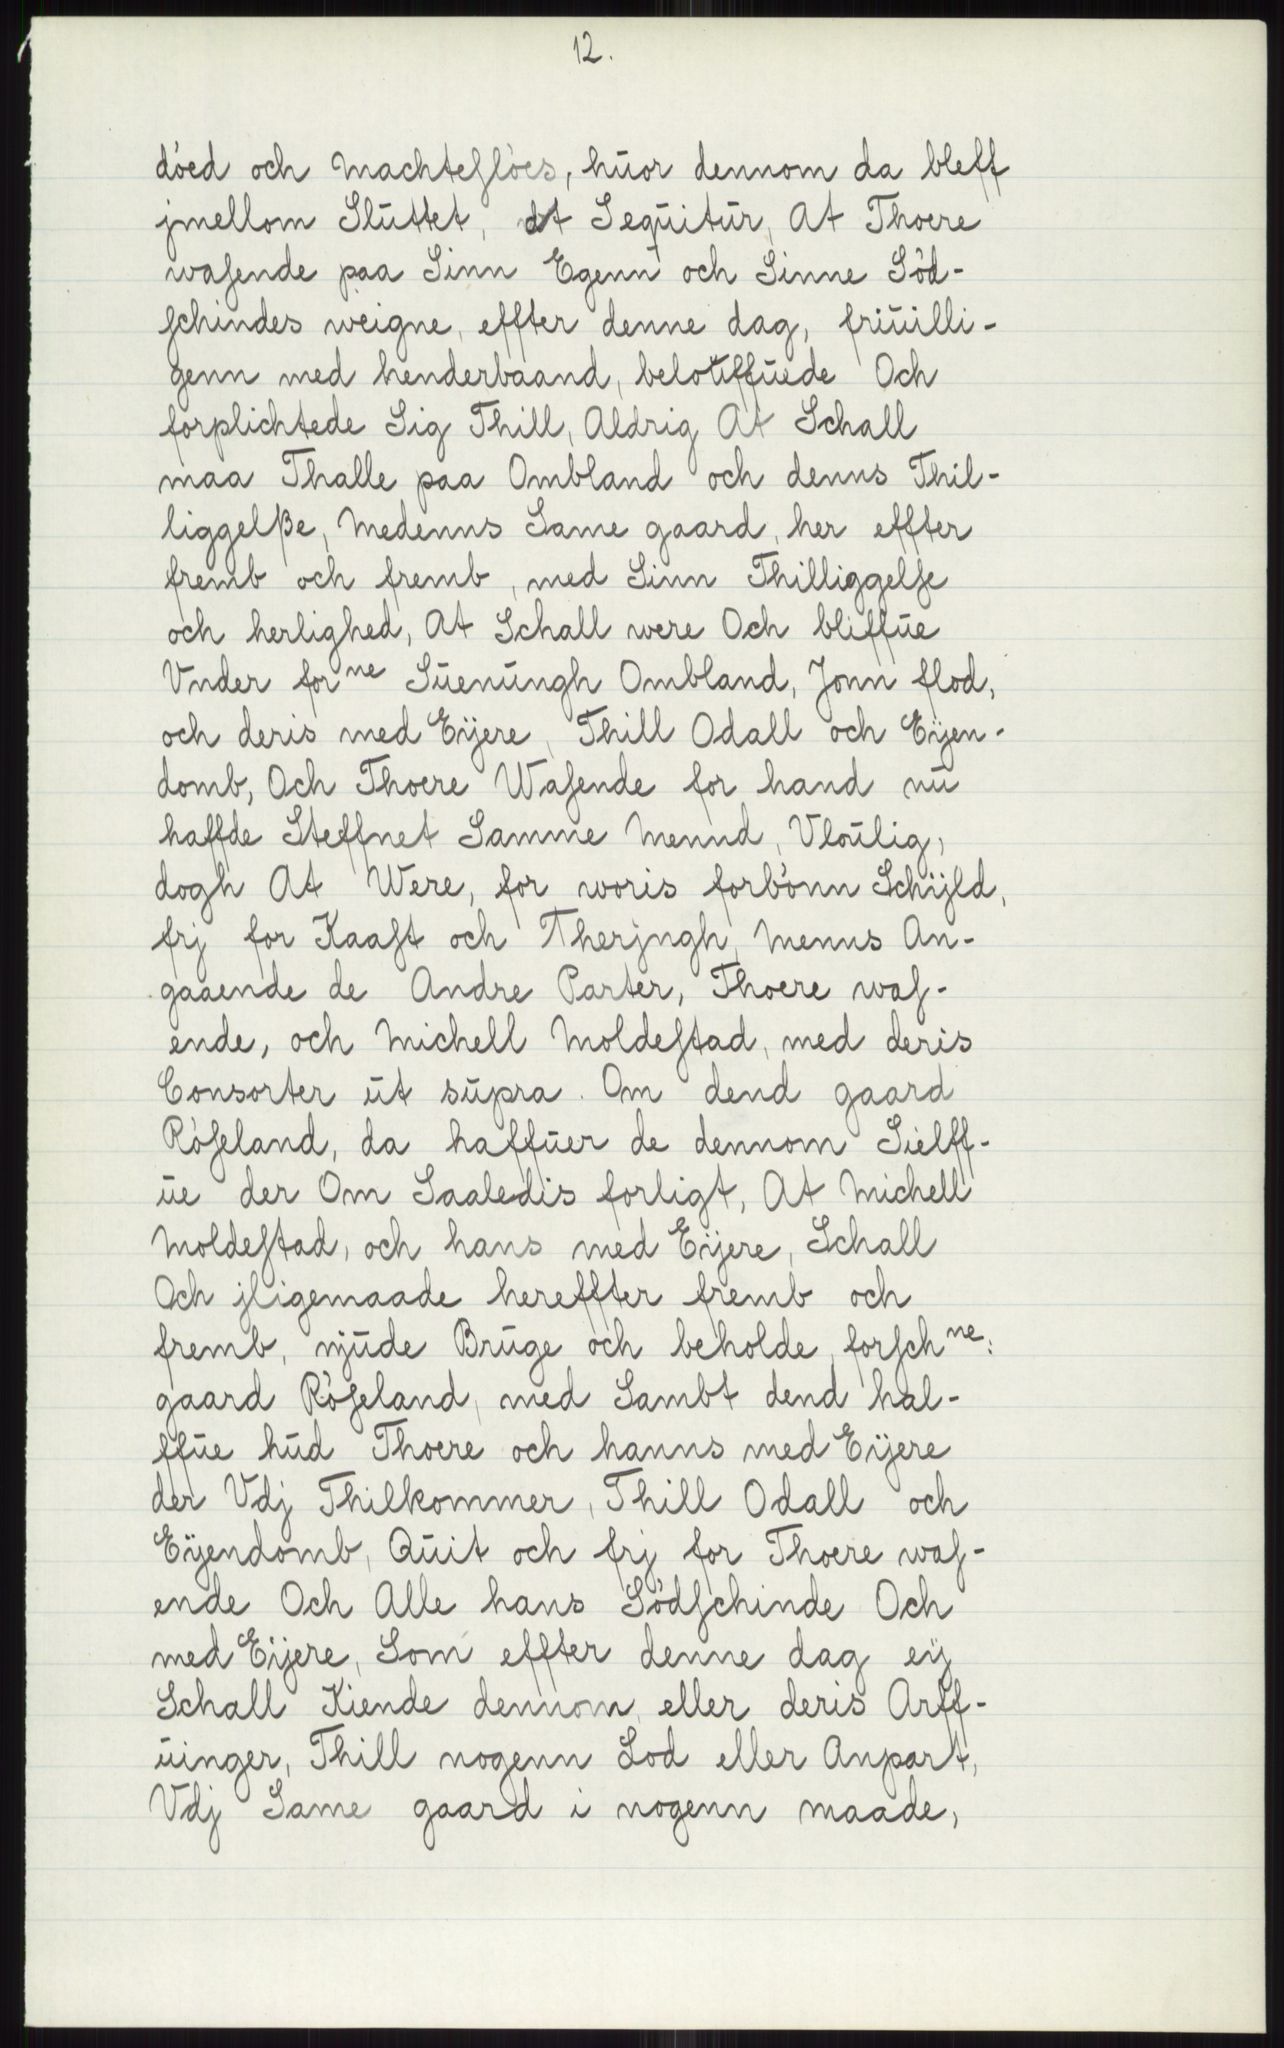 12.
döed och Machteslöes, huor dennom da bleff
jmellom Sluttet, ut Sequitur, At Thoere
wasende paa Sinn Egenn och Sinne Söd-
schindes weigne, effter denne dag, friuilli-
genn med henderbaand, beloffuede Och
forplichtede Sig Thill, Aldrig At Schall
maa Thalle paa Ombland och denns Thil-
liggelße, Medenns Same gaard, her effter
fremb och fremb, med Sinn Thilliggelse
och herlighed, At Schall were Och bliffue
Vnder forne Suenungh Ombland, Jonn flod,
och deris med Eÿere, Thill Odall och Eÿen-
domb, Och Thoere Wasende for hand nu
haffde Steffnet Samme Mennd, Vloulig,
dogh At Were, for woris forbönn Schÿld,
frj for Kaast och Therjngh, Menns An-
gaaende de Andre Parter, Thoere was-
ende, och Michell Moldestad, med deris
Consorter ut supra. Om dend gaard
Röseland, da haffuer de dennom Sielff-
ue der Om Saaledis forligt, At Michell
Moldestad, och hans med Eÿere, Schall
Och jligemaade hereffter fremb och
fremb, njude Bruge och beholde, forschne:
gaard Röseland, med Sambt dend hal-
ffue hud Thoere och hanns med Eÿere
der Vdj Thilkommer, Thill Odall och
Eÿendomb, Quit och frj for Thoere was-
ende Och Alle hans Södschinde Och
med Eÿere, Som effter denne dag eÿ
Schall Kiende dennom, eller deris Arff-
uinger, Thill nogenn Lod eller Anpart,
Vdj Same gaard i nogenn maade,